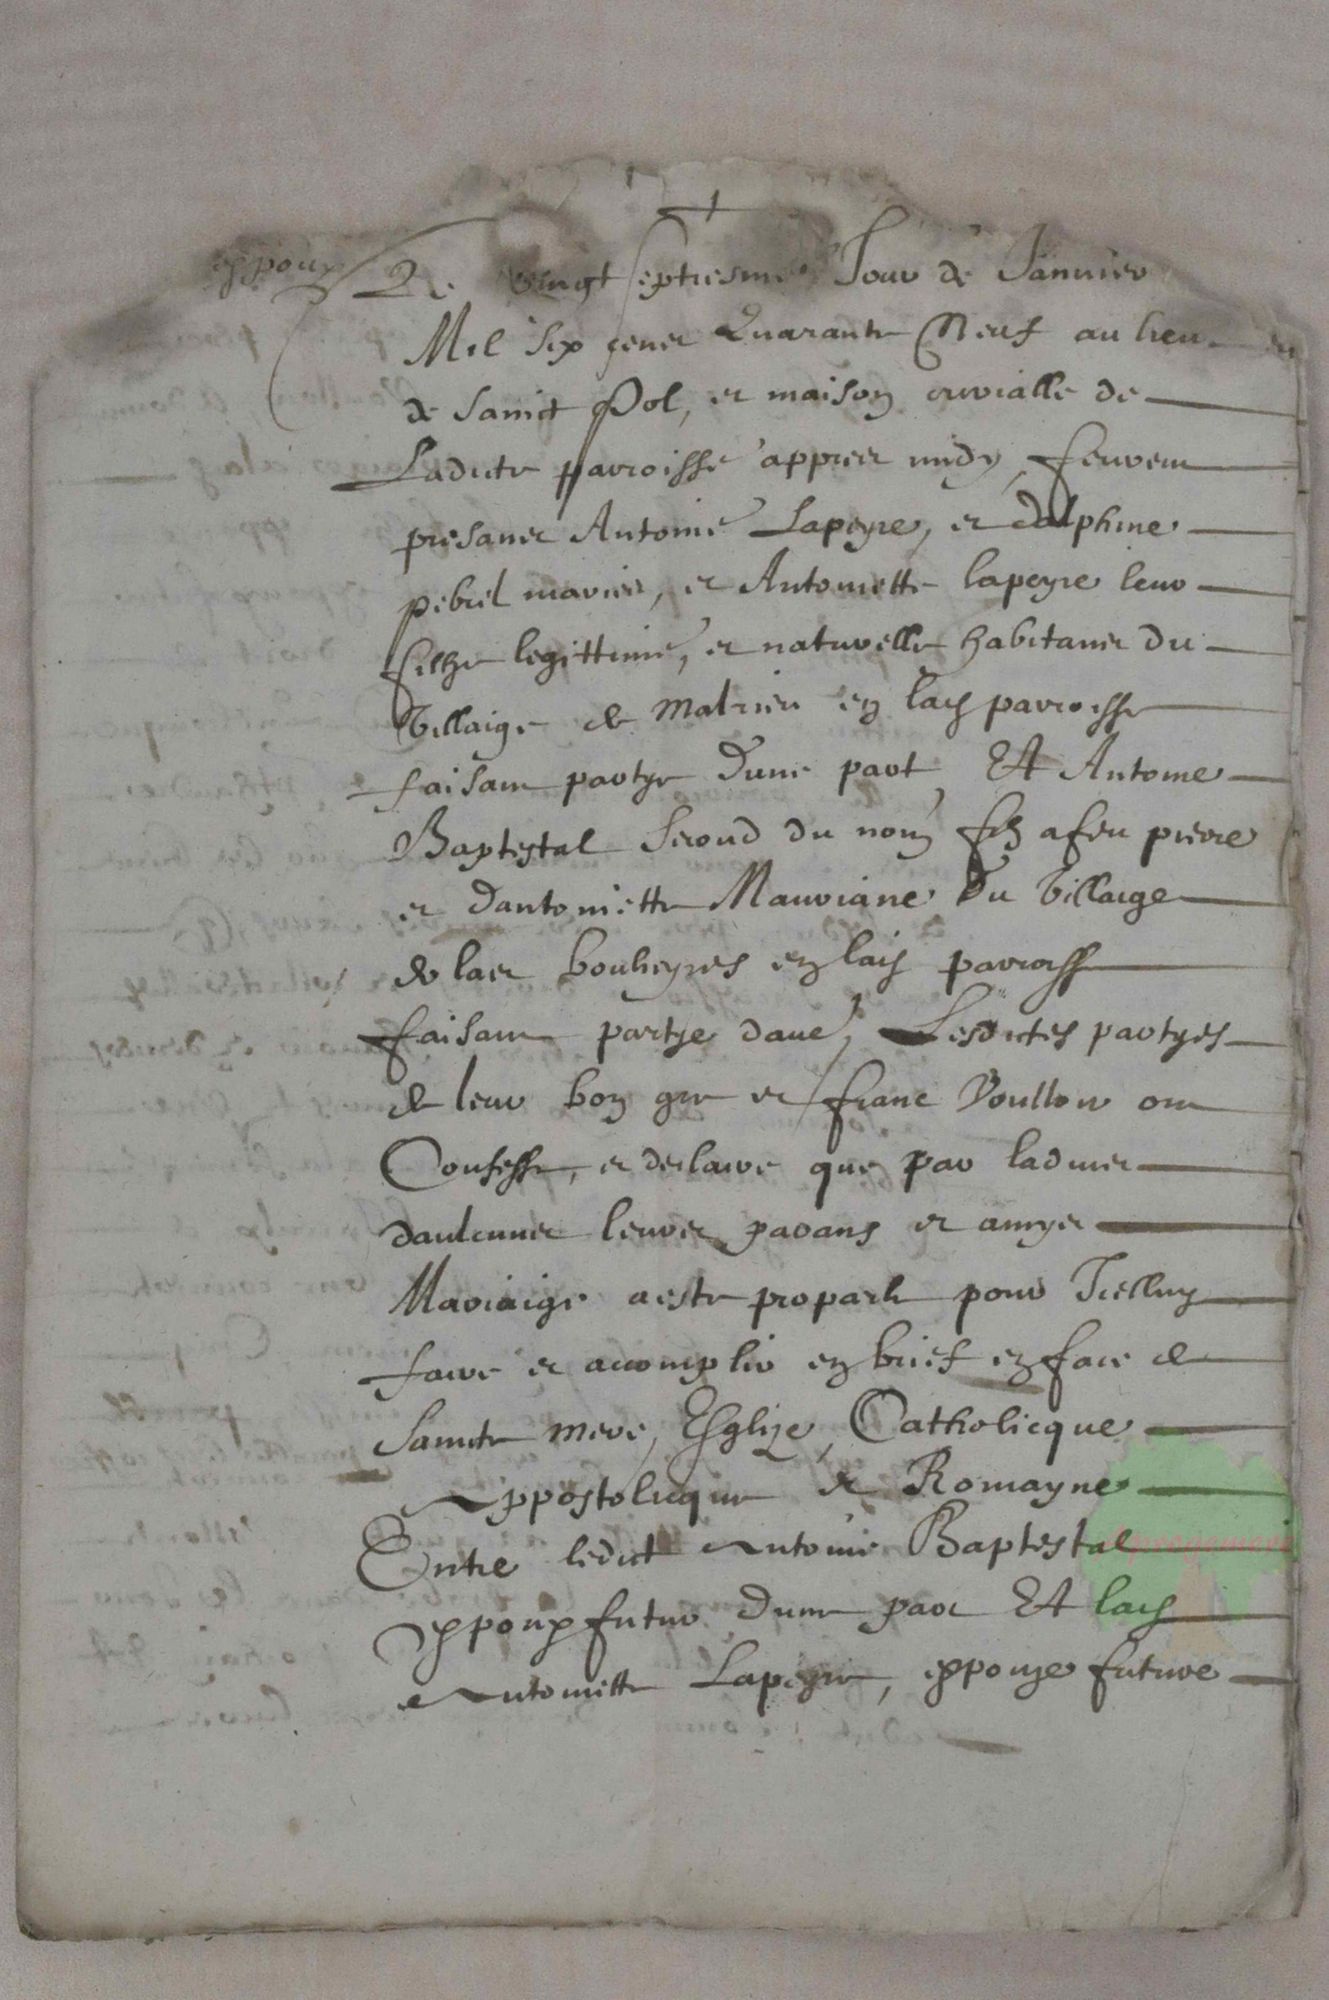 exppoux
Le vingt septiesme Jour de Janvier
Mil six cens Quarante Neuf au lieu
de sainct Pol, et maison curialle de
Ladicte parroisse appres midy, feurent
presans Antoine Lapeyre, et dalphine
pebrel mariés, et Antoinette lapeyre leur
filhe legittime, et naturelle habitans du
Villaige de malrieu en lad parroisse
faisant partye dune part, Et Antoine
Baptistal segond du nom filz a feu pierre
et dantoinette Mauriane du Villaige
de las bouheyres en lad parroisse
faisant partye daue, Lesdictes partyes
de leur bon gre et franc Voulloir ont
Confesse, et declaire que par ladvies
daulcunes leures parans et amyes
Mariaige a este proparle pour Icelluy
faire et accomplir en brief en face de
saincte mere, Esglize, Catholicque
Appostolicque et Romayne
Entre ledict Antoine Baptistal
exppoux futur dune part Et lad
Antoinette Lapeyre, exppouze future